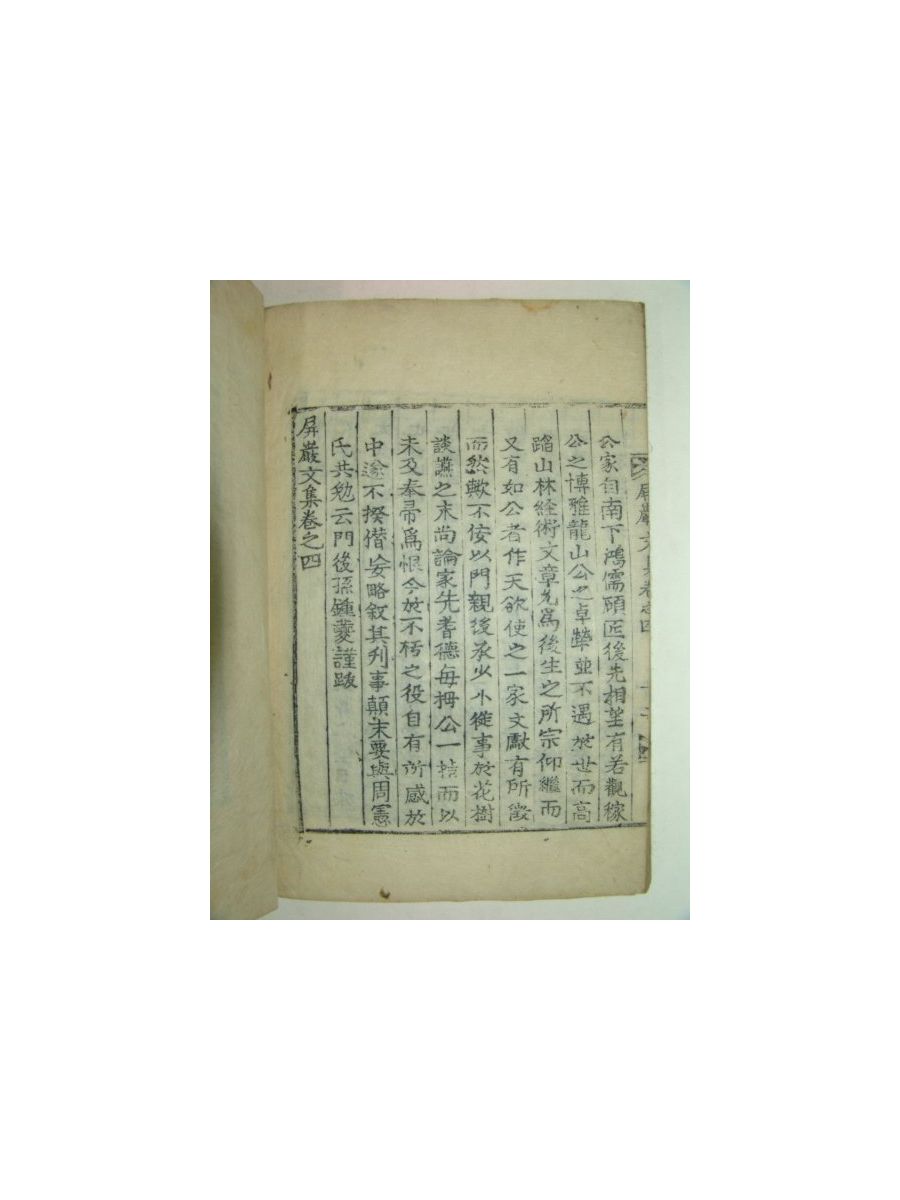 屛巖文集卷之四
公家自南下鴻儒碩匠後先相望有若觀稼
公之博雅龍山公之卓犖並不遇於世而高
蹈山林經術文章允爲後生之所宗仰繼而
又有如公者作天欲使之一家文獻有所徵
而然歟不佞以門親後承少小從事於花樹
談讌之末尚論家先耆德每拇公一指而以
未及奉帚爲恨今於不朽之役自有所感於
中遂不揆僭妄略敘其刋事顚末要與周憲
氏共勉云門後孫鍾夔謹跋
屛巖文集卷之四